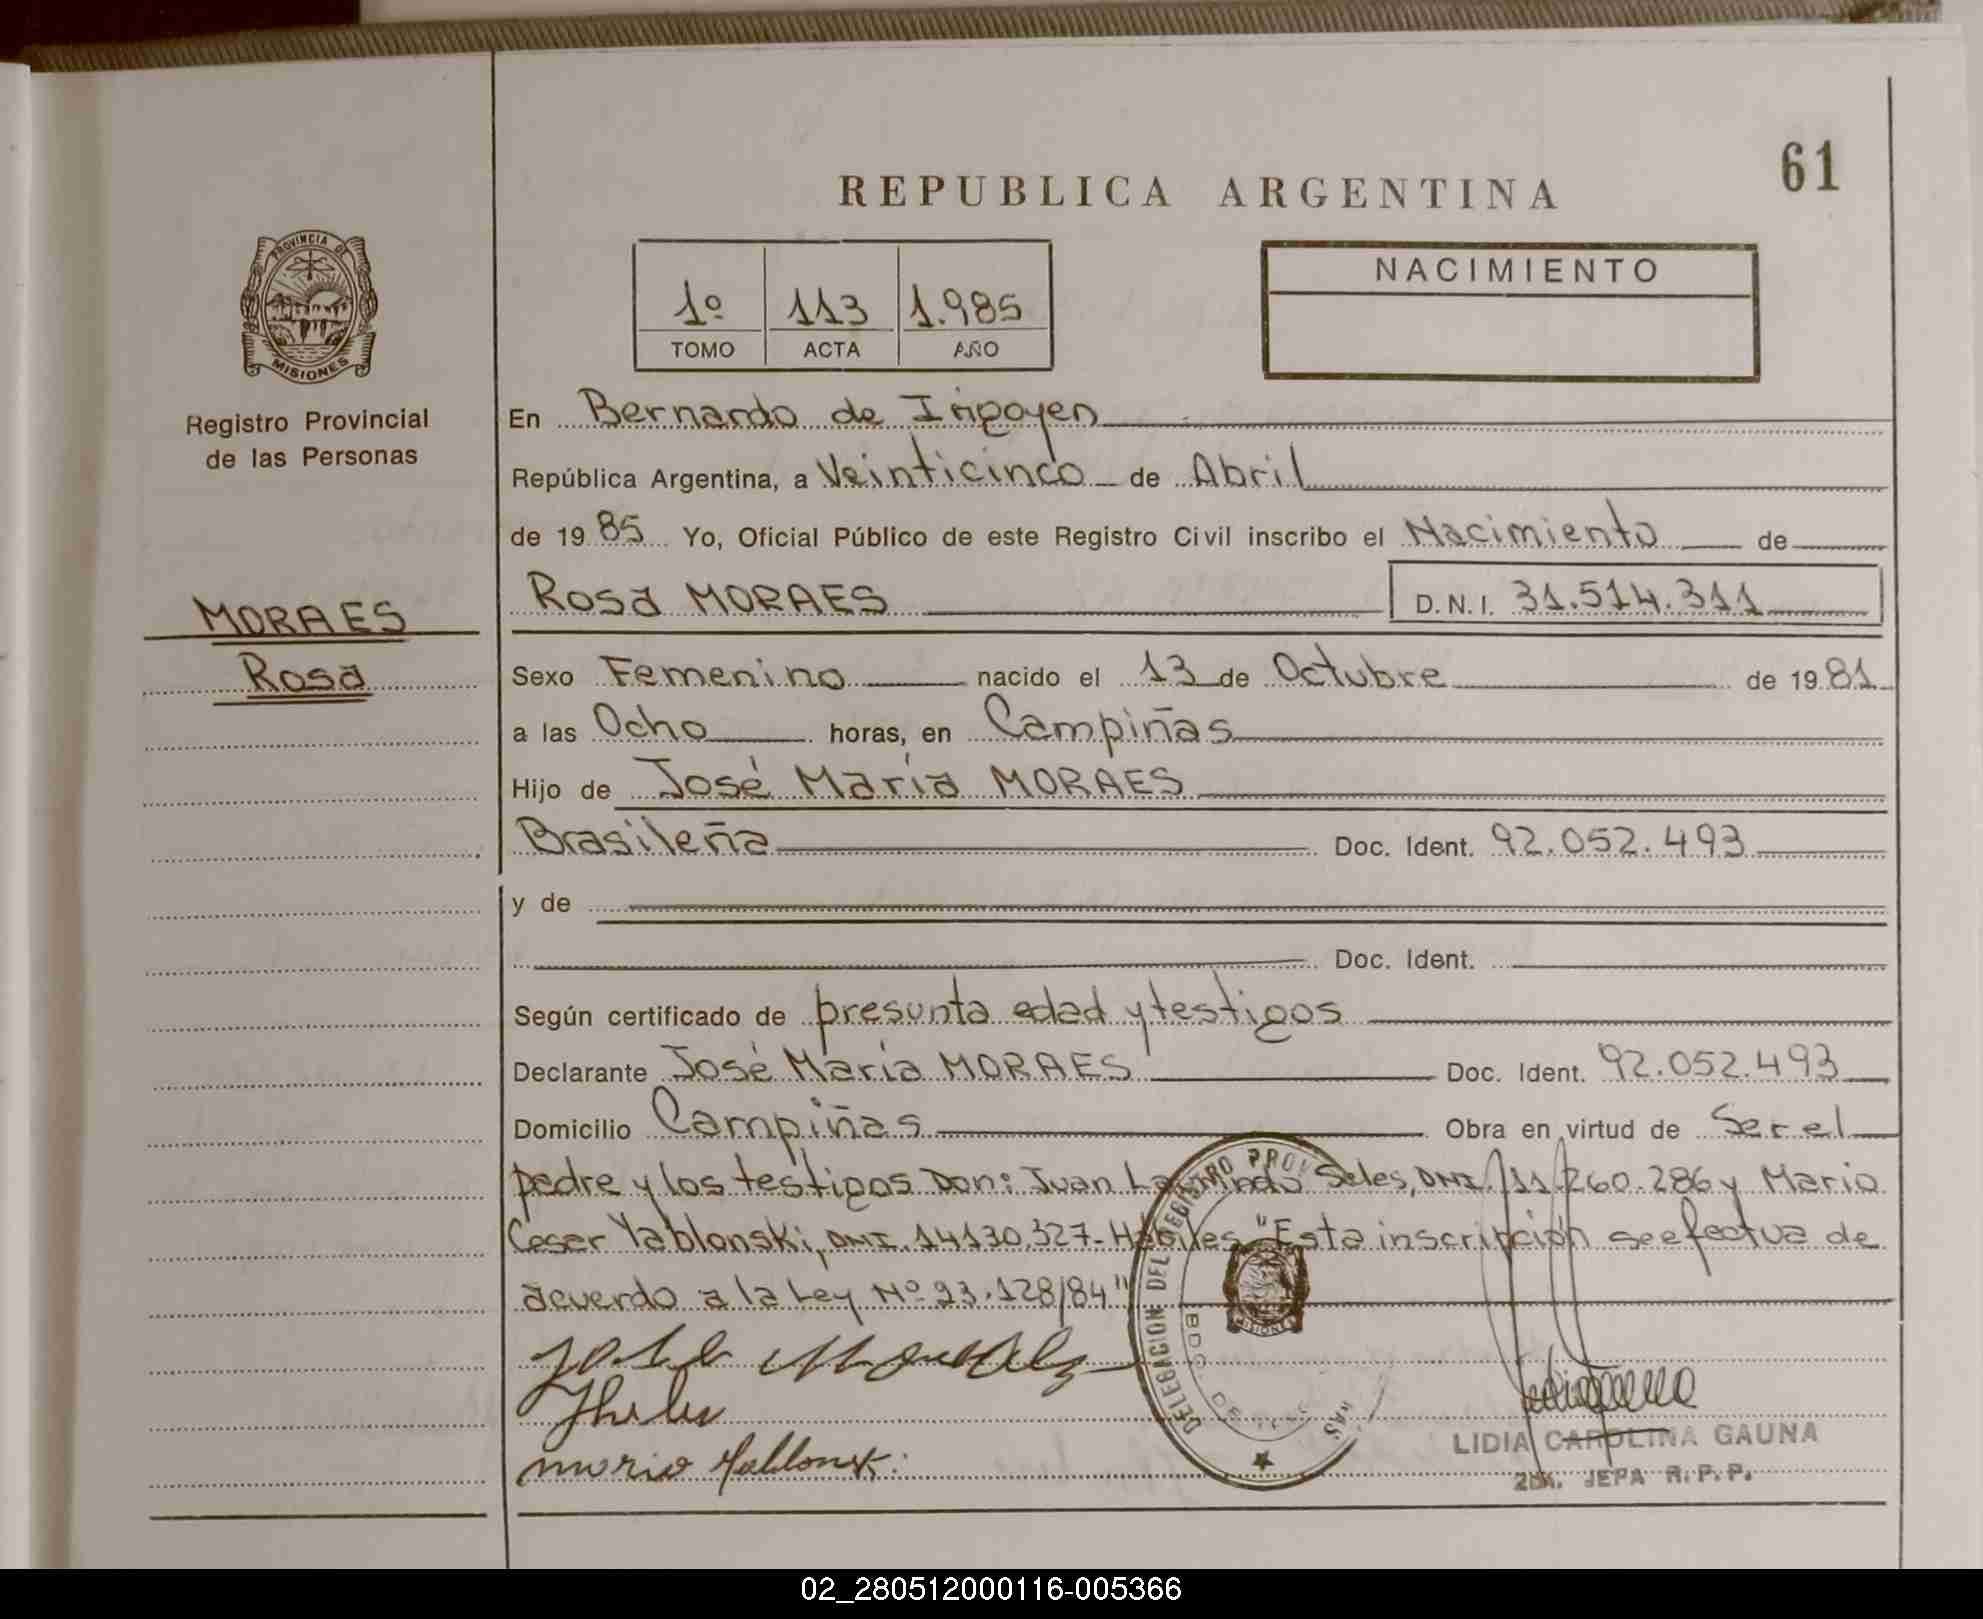 61
REPUBLICA ARGENTINA
PROVINCIA DE
MISIONES
Registro Provincial
de las Personas
1º 113 1.985
TOMO ACTA AÑO
NACIMIENTO
En Bernardo de Irigoyen
República Argentina, a Veinticinco de Abril
de 1985 Yo, Oficial Público de este Registro Civil inscribo el Nacimiento de
MORAES
Rosa
Rosa MORAES D.N.I. 31.514.311
Sexo Femenino nacido el 13 de Octubre de 1981
a las Ocho horas, en Campiñas
Hijo de José María MORAES
Brasileña Doc. Ident. 92.052.493
y de
Doc. Ident.
Según certificado de presunta edad y testigos
Declarante José María MORAES Doc. Ident. 92.052.493
Domicilio Campiñas Obra en virtud de Ser el
padre y los testigos Don: Juan Seles, DNI. 11.260.286 y Mario
Cesar Yablonski, DNI. 14130.327- Hábiles "Esta inscripción se efectua de
acuerdo a la Ley Nº 23.128/84"
DELEGACION DEL REGISTRO
MISIONES
LIDIA CAROLINA GAUNA
2da. JEFA R.P.P.
02_280512000116-005366